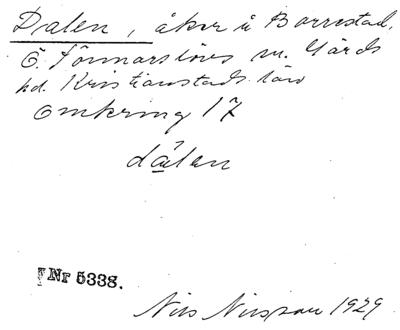 Dalen, åker i Borrestad,
Ö. Sönnarslövs sn. Gärds
hd. Kristianstads län
Omkring 17
dálen
Nr 5338.
Nils Nilsson 1929